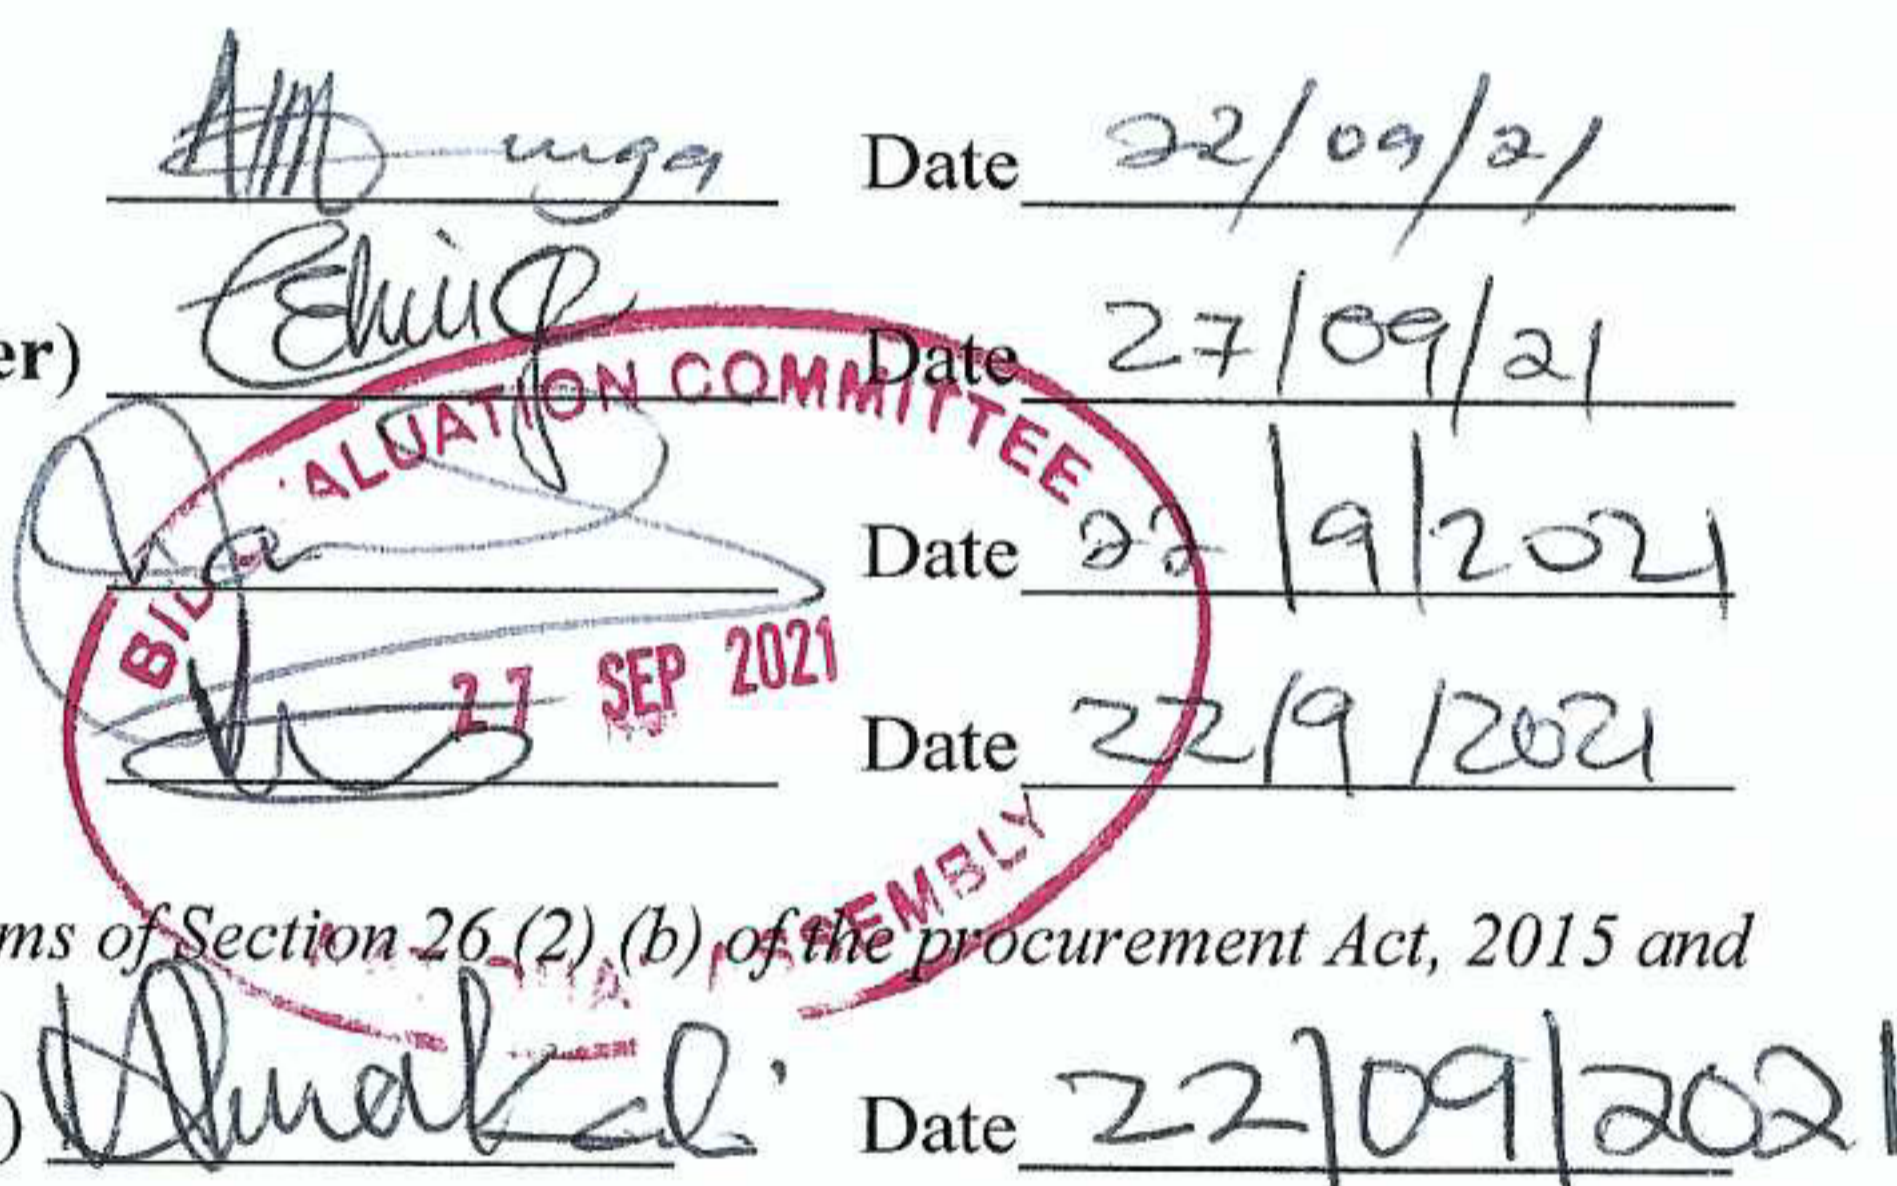 Date 22/09/21
er) Date 27/09/21
ALUATION COMMITTEE
Date 22/9/2021
BID
27 SEP 2021
Date 22/9/2021
EMBLY
ms of Section 26 (2) (b) of the procurement Act, 2015 and
) Date 22/09/2021